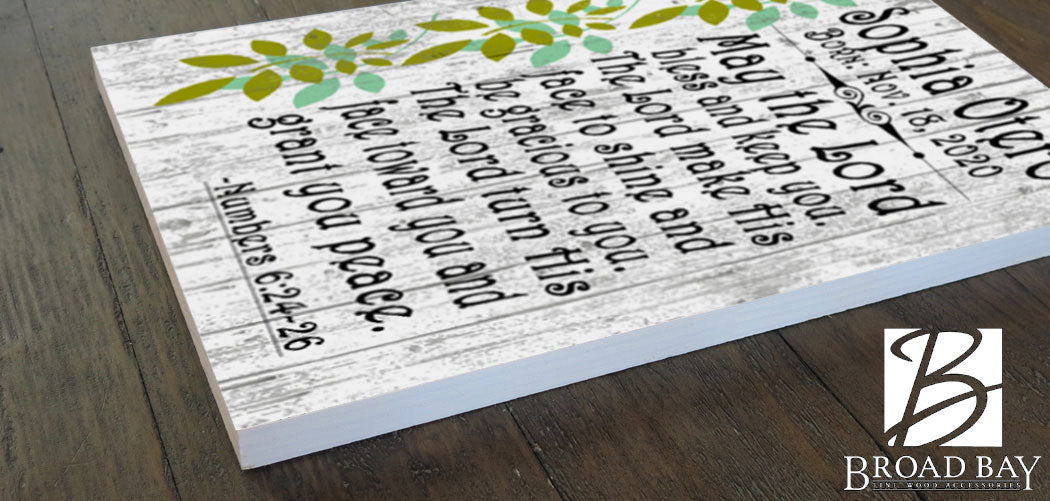 Sophia Otero
Born: Nov. 18, 2020
May the Lord
bless and keep you.
The Lord make His
face to shine and
be gracious to you.
The Lord turn His
face toward you and
grant you peace.
-Numbers 6:24-26
B
BROAD BAY
FINE WOOD ACCESSORIES